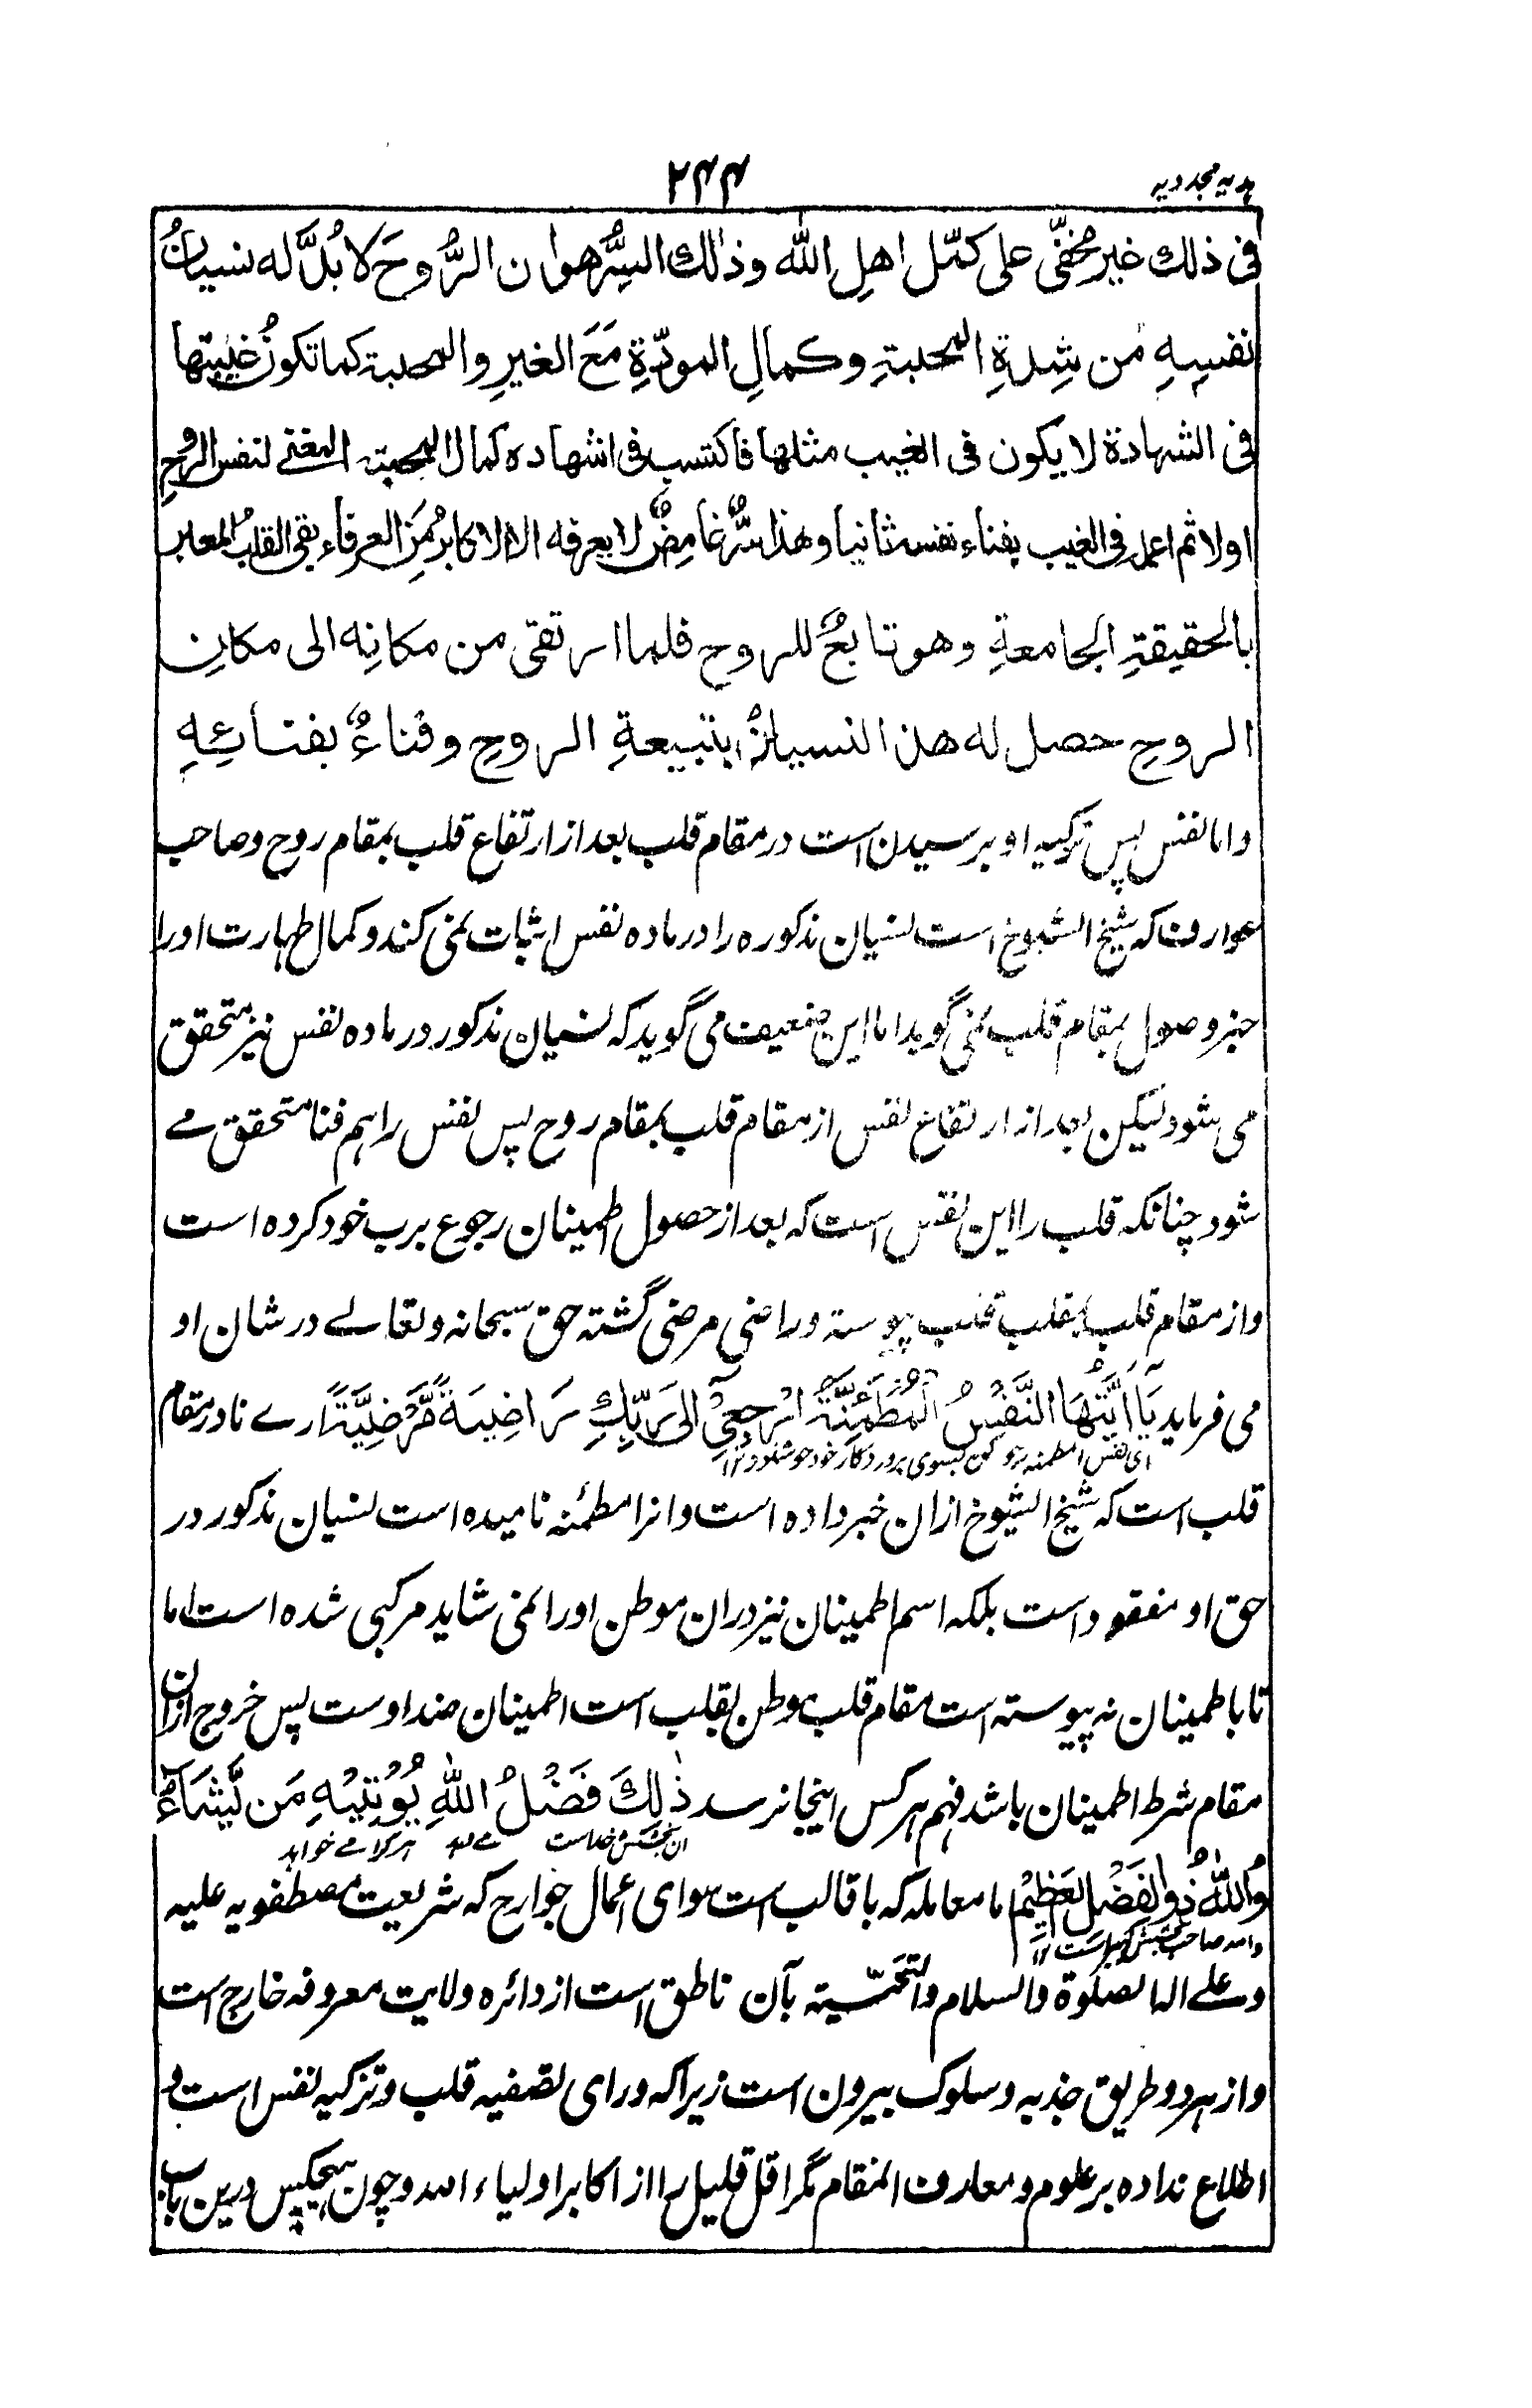 ہدیہ مجددیہ
۲۴۴
فی ذلك غیر مُخفّی علی کمّل اهلِ اللّٰه وذٰلك السِّرُ هوان الرُّوحَ لابُدَّ له نسیانُ
نفسِهِ من شِدةِ المحبةِ وکمالِ المودّةِ مَعَ الغیرِ والمحبة کما تکونُ غَیبتها
فی الشهادة لا یکون فی الغیب مثلها فاکتسب فی الشهاده کمال المحبة المغنی لنفس الروحِ
اولا ثم اعمل فی الغیب بفناء نفسه ثانیا وهذا سِرٌّ غامِضٌ لا یعرفه الا الاکابرُ مِنَ العرفاء بقی القلبُ المعابر
بالحقیقةِ الجامعةِ وهو تابعٌ للروحِ فلما ارتقی من مکانِه الی مکانِ
الروحِ حصل له هذا النسیانُ بتبیعةِ الروحِ وفناءٌ بفنائِهِ
واما نفس پس تزکیہ او برسیدن است در مقام قلب بعد از ارتفاع قلب بمقام روح وصاحب
عوارف که شیخ الشیوخ است نسیان مذکوره را در ماده نفس اثبات نمی کند و کمال طهارت او را
جز وصول بمقام قلب نمی گوید اما این ضعیف می گوید که نسیان مذکور در ماده نفس نیز متحقق
می شود لیکن بعد از ارتفاع نفس از مقام قلب بمقام روح پس نفس را هم فنا متحقق مے
شود چنانکه قلب را این نفس است که بعد از حصول اطمینان رجوع برب خود کرده است
واز مقام قلب بمقلب قلب پیوسته وراضی مرضی گشته حق سبحانه وتعالے در شان او
می فرماید یَا اَیَّتُهَا النَّفْسُ الْمُطْمَئِنَّةُ ارْجِعِیْ اِلٰی رَبِّكِ رَاضِیَةً مَّرْضِیَّةً آرے تا در مقام
ای نفس مطمئنه رجوع کن بسوی پروردگار خود خوشنود ۱۲
قلب است که شیخ الشیوخ ازان خبر داده است وانرا مطمئنه نامیده است نسیان مذکور در
حق او مفقود است بلکه اسم اطمینان نیز دران موطن او را نمی شاید مرکبی شده است اما
تا باطمینان نه پیوسته است مقام قلب موطن تقلب است اطمینان ضد اوست پس خروج ازان
مقام شرط اطمینان باشد فهم هر کس اینجا نرسد ذٰلِكَ فَضْلُ اللّٰهِ یُؤْتِیْهِ مَن یَّشَآءُ
ان بخشش خداست مے دهد هر کرا مے خواهد
وَاللّٰهُ ذُو الْفَضْلِ الْعَظِیْمِ اما معامله که با قالب است سوای اعمال جوارح که شریعت مصطفویه علیه
والله صاحب بخشش کبیر است ۱۲
وعلے اله الصلوة والسلام والتحیة بآن ناطق است از دائره ولایت معروفه خارج است
واز هر دو طریق جذبه وسلوک بیرون است زیرا که ورای تصفیه قلب وتزکیه نفس است و
اطلاع نداده بر علوم ومعارف انمقام مگر اقل قلیل را از اکابر اولیاء الله وچون هیچکس درین باب